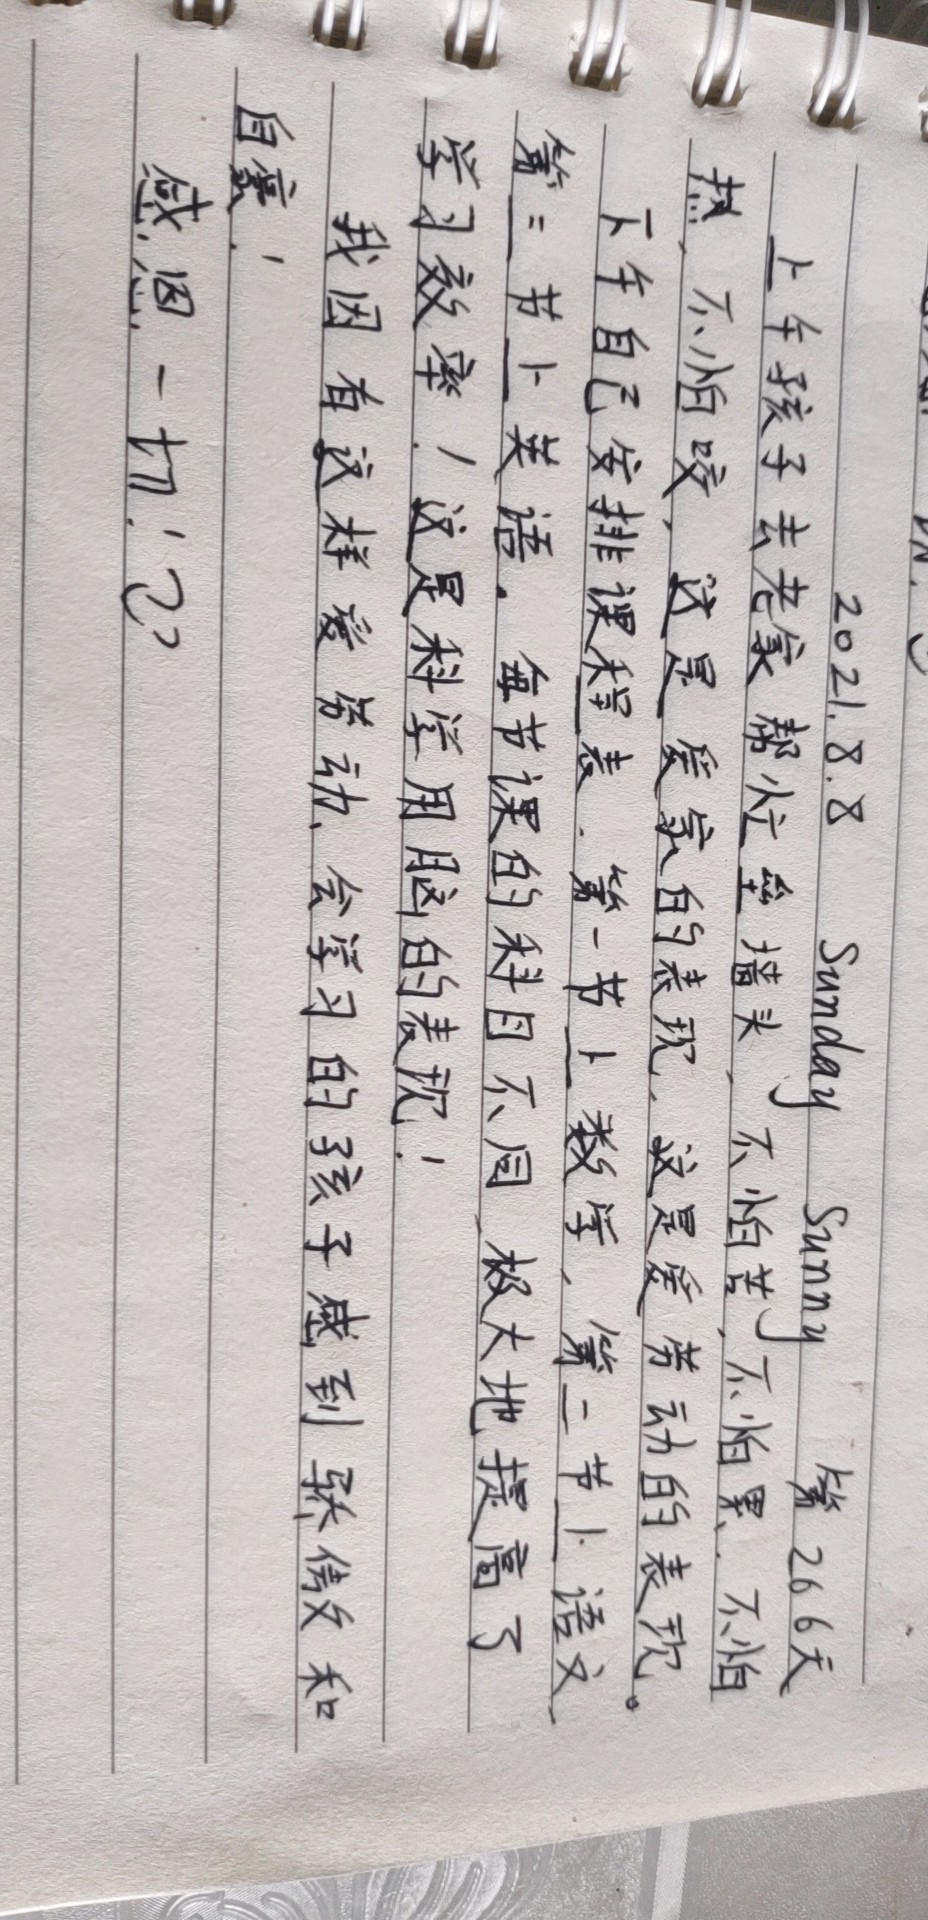 2021.8.8 Sunday Sunny 第266天
上午孩子去老家帮忙垒墙头、不怕苦,不怕累、不怕
热、不怕咬,这是爱家的表现、这是爱劳动的表现。
下午自己安排课程表.第一节上数学、第二节上语文、
第三节上英语.每节课的科目不同、极大地提高了
学习效率!这是科学用脑的表现!
我因有这样爱劳动、会学习的孩子感到骄傲和
自豪!
感恩一切!